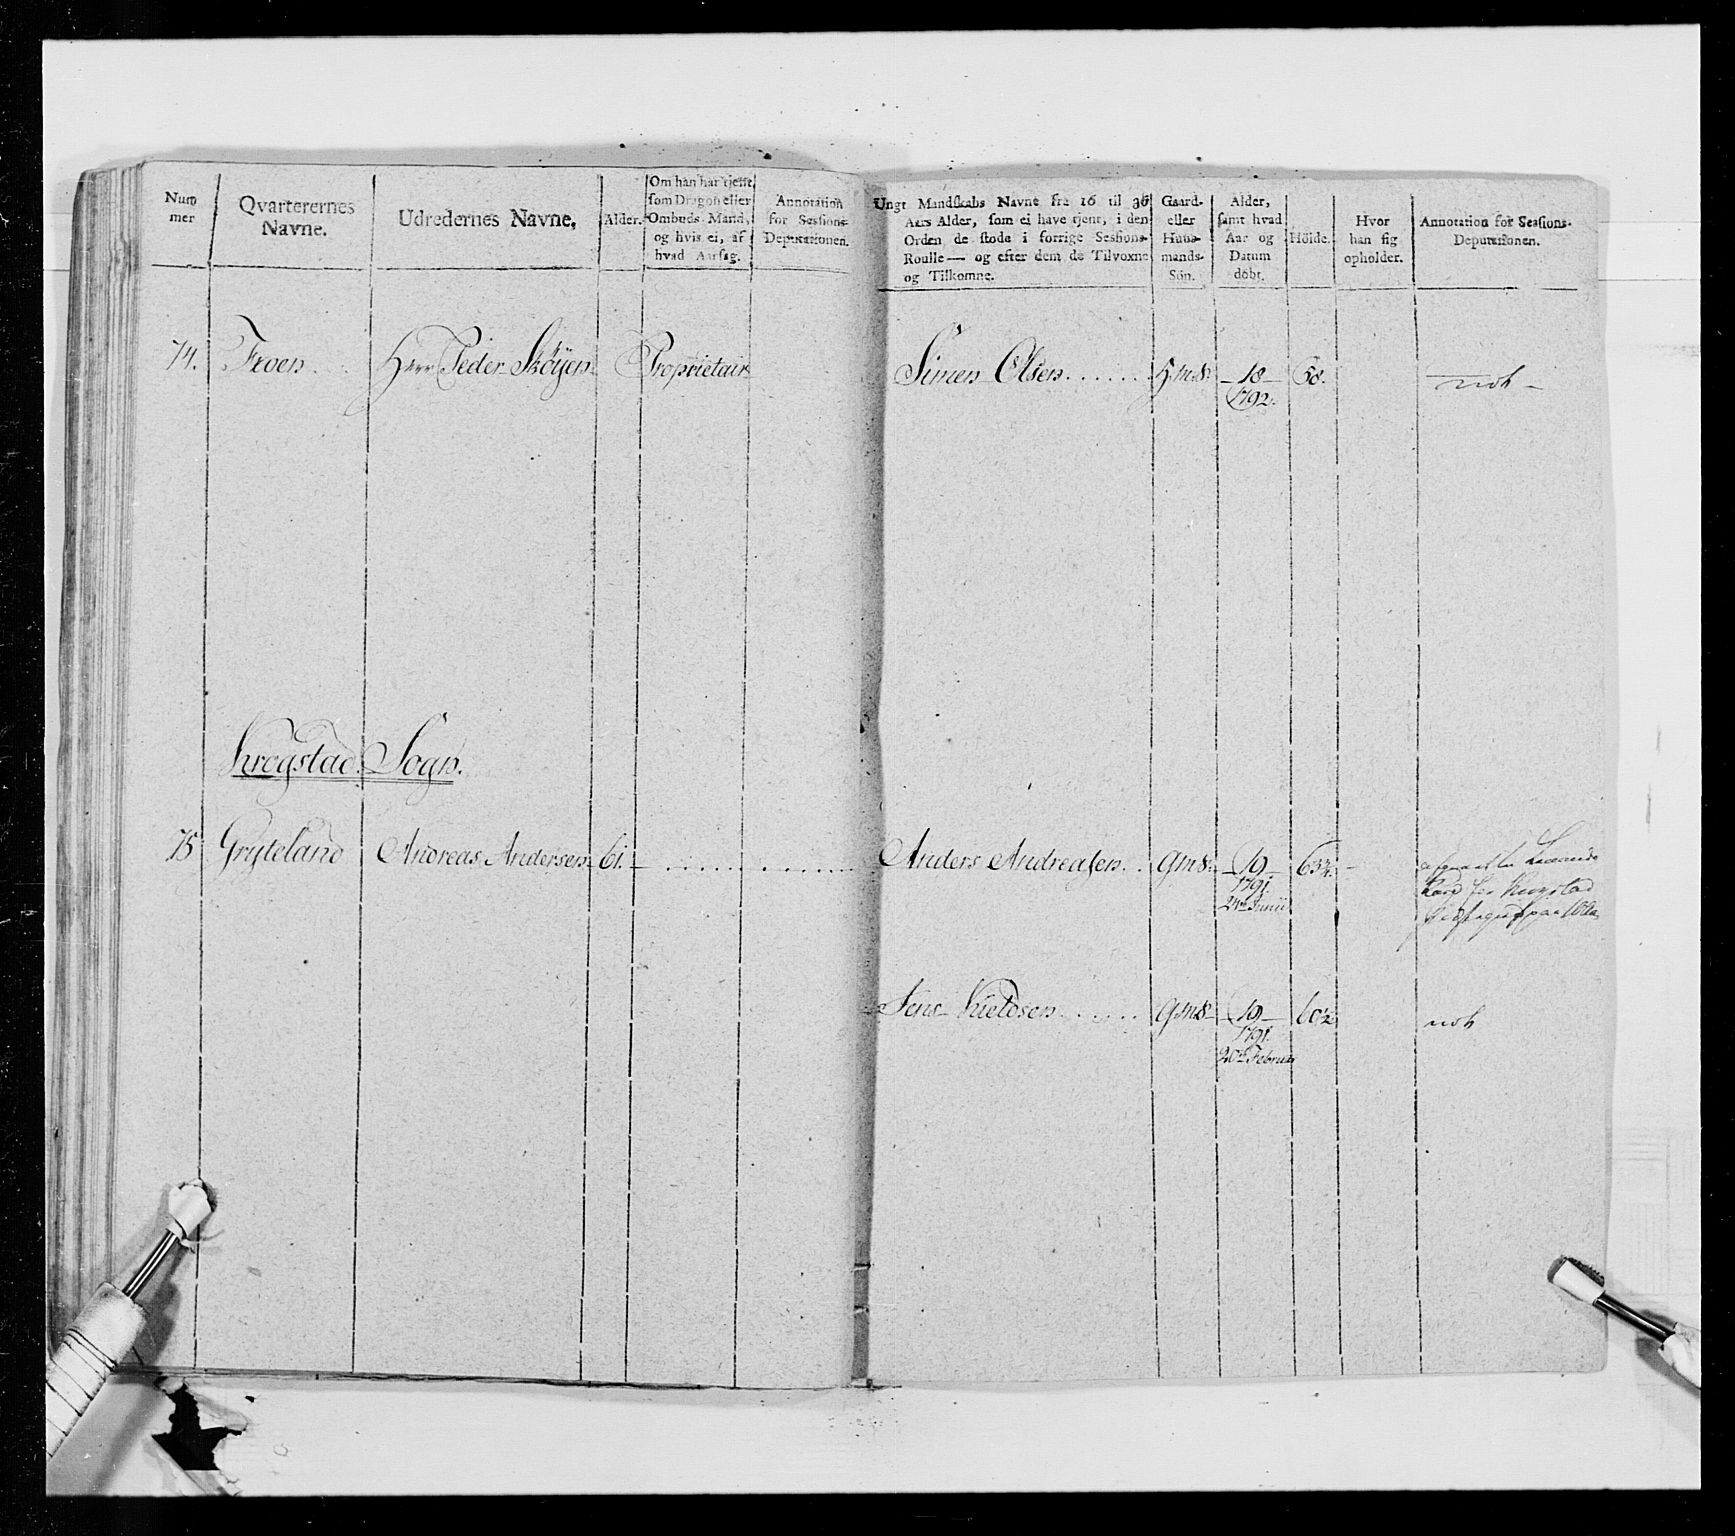 Num
mer
Qvarterernes
Navne.
Udredernes Navne.
Alder.
Om han har tjent
som Dragon eller
Ombuds-Mand,
og hvis ei, af
hvad Aarsag.
Annotation
for Sessions-
Deputationen.
Ungt Mandskabs Navne fra 16 til 36
Aars Alder, som ei have tjent, i den
Orden de stode i forrige Sessions-
Roulle — og efter dem de Tilvoxne
og Tilkomne.
Gaard-
eller
Huus-
mands-
Søn.
Alder,
samt hvad
Aar og
Datum
döbt.
Höide.
Hvor
han sig
opholder.
Annotation for Sessions-
Deputationen.
74. Froen . . Herr Peder Skøyen Proprietair Simen Olsen . . . . . . H.m.S. 18 58.
1792.
Krogstad Sogn.
75 Gryteland Andreas Andersen 61. Anders Andreasen . . G.m.S. 19 63¼.
1791.
24de Junii
Jens Kieldsen . . . . . . G.m.S. 19 60½
1791.
20de Februar